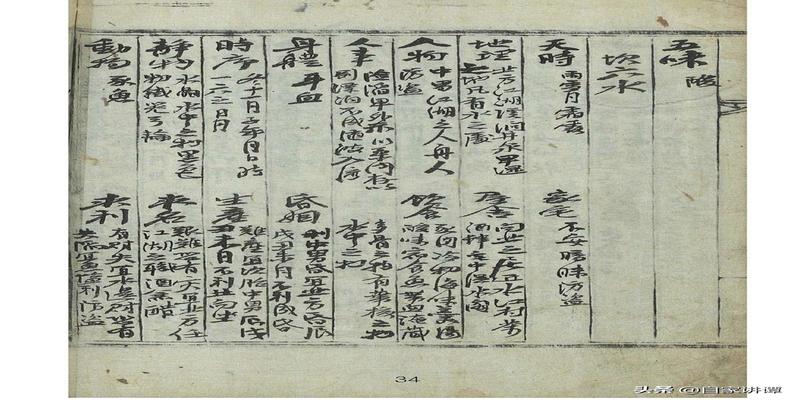 五味 酸
坎六水
天時 雨雪月霜露
家宅 不安暗昧防盜
地理 北方江湖溪澗井泉卑濕
之地凡有水之處
居舍 向北之居近水江村茅
酒肆宅中濕水閣
人物 中男江湖之人舟人
防盜
飲食 豕肉冷物海味羹湯
酸味宿食魚帶血掩藏
人事 險陷卑外示以柔內
漂泊不成隨波入
多骨之物有帶核之物
水中之物
身體 耳血
婚姻 利中男宜北方婚辰
戌丑未月不利成婚
時序 冬十一月子年月日時
一六之日月
生產 難產宜次胎中男辰戌
丑未日不利
靜物 水中之物黑色
物鐵弓輪
求名 艱難有災宜北方任
江湖之職酒
動物 豕魚
求利 有財失宜水邊財恐有
失陷宜魚鹽利防盜
34
头条 @自家讲谭